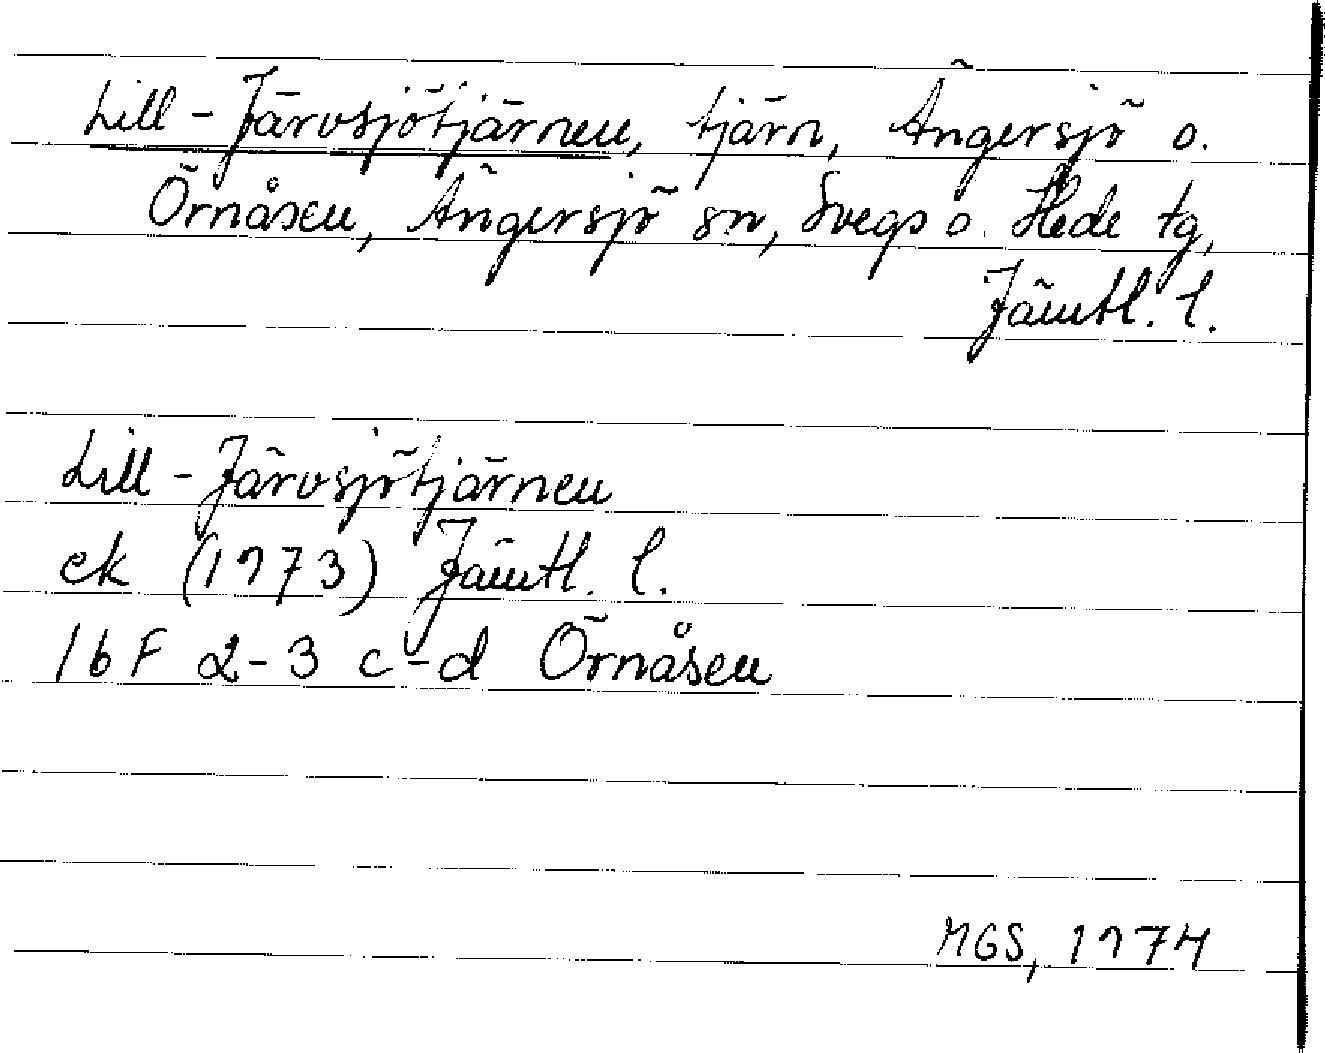 Lill-Järvsjötjärnen, tjärn, Ängersjö o.
Örnåsen, Ängersjö sn, Svegs o. Hede tg,
Jämtl. l.
Lill-Järvsjötjärnen
ek (1973) Jämtl. l.
16F 2-3 c-d Örnåsen
MGS, 1974